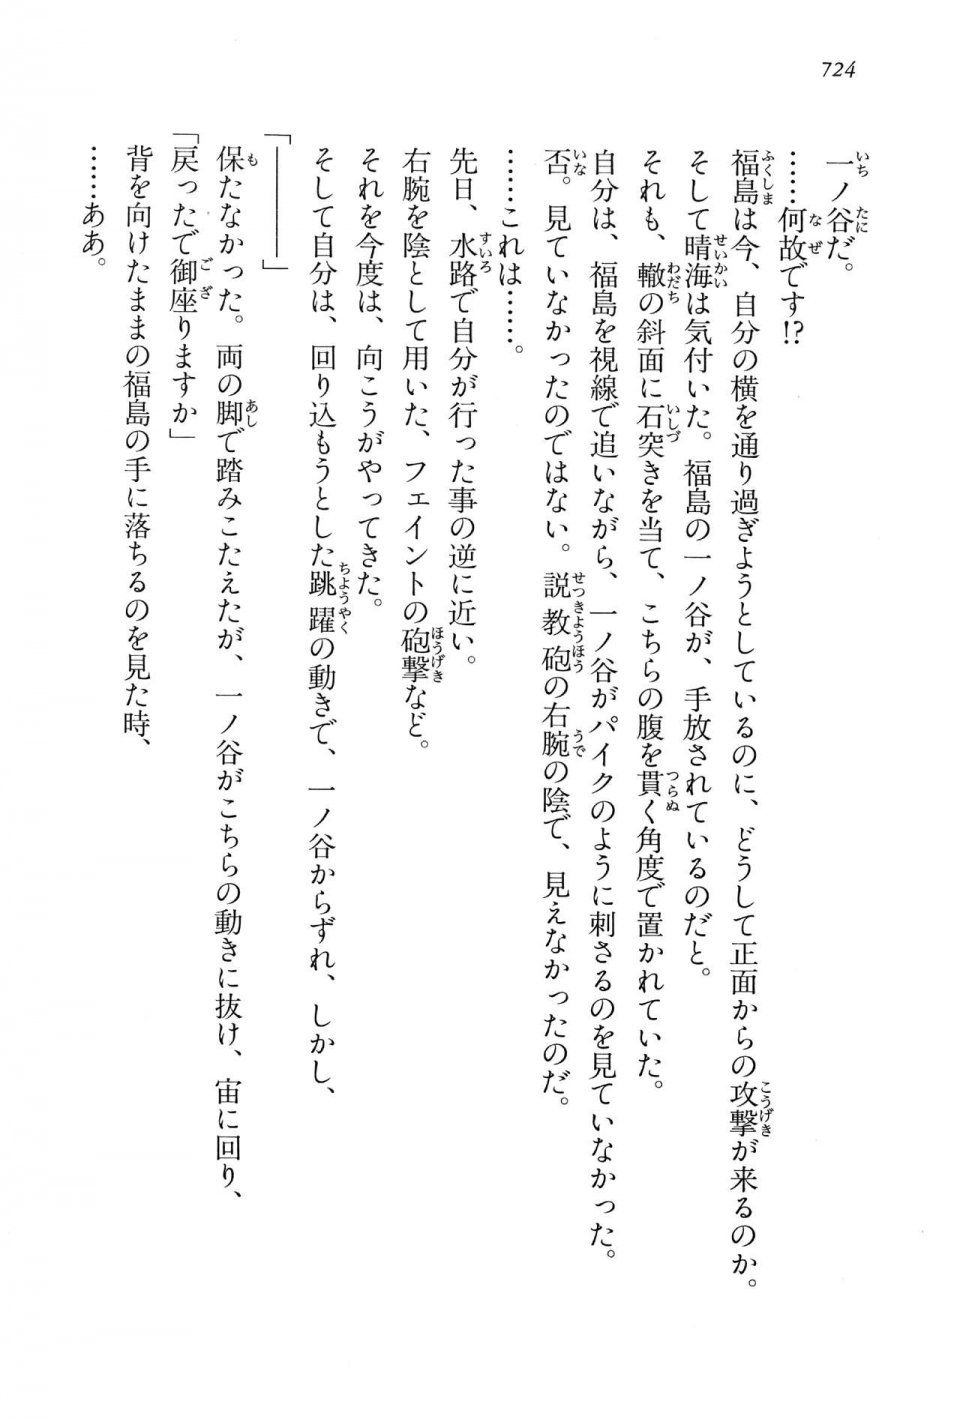 724
一ノ谷だ。
……何故です!?
福島は今、自分の横を通り過ぎようとしているのに、どうして正面からの攻撃が来るのか。
そして晴海は気付いた。福島の一ノ谷が、手放されているのだと。
それも、轍の斜面に石突きを当て、こちらの腹を貫く角度で置かれていた。
自分は、福島を視線で追いながら、一ノ谷がパイクのように刺さるのを見ていなかった。
否。見ていなかったのではない。説教砲の右腕の陰で、見えなかったのだ。
……これは……。
先日、水路で自分が行った事の逆に近い。
右腕を陰として用いた、フェイントの砲撃など。
それを今度は、向こうがやってきた。
そして自分は、回り込もうとした跳躍の動きで、一ノ谷からずれ、しかし、
「――――」
保たなかった。両の脚で踏みこたえたが、一ノ谷がこちらの動きに抜け、宙に回り、
「戻ったで御座りますか」
背を向けたままの福島の手に落ちるのを見た時、
……ああ。